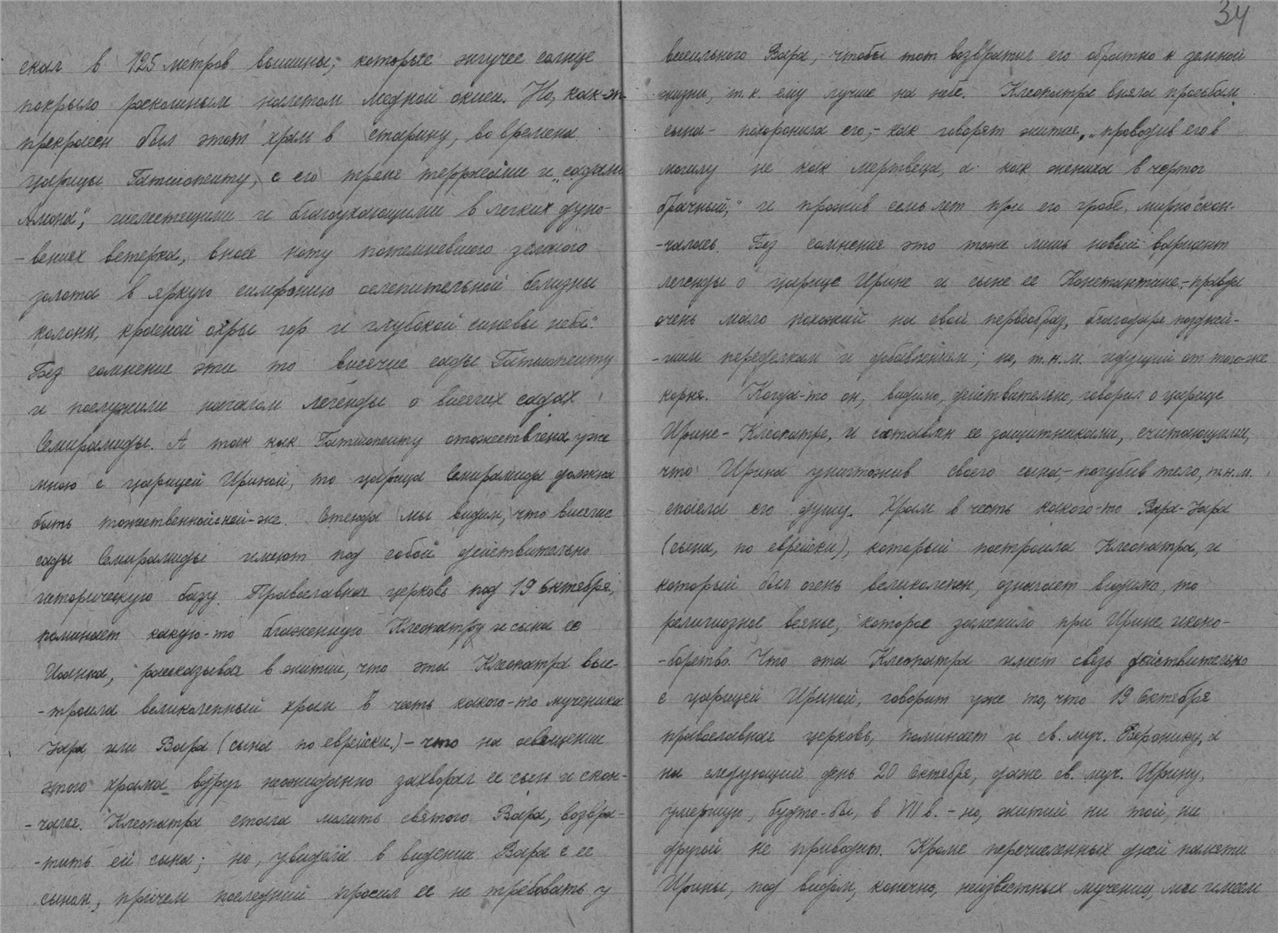 скал в 125 метров вышины, которые жгучее солнце
покрыло роскошным налетом медной окиси. Но, как-же
прекрасен был этот храм в старину, во времена
царицы Гатшопситу, с его тремя террасами и „садами
Амона“, шелестящими и благоухающими в легких дуно-
-вениях ветерка, внося ноту потемневшего зеленого
золота в яркую симфонию ослепительной белизны
колонн, красной охры гор и глубокой синевы неба.“
Без сомнения эти то висячие сады Гатшопситу
и послужили началом легенды о висячих садах
Семирамиды. А так как Гатшопситу отожествлена уже
мною с царицей Ириной, то царица Семирамида должна
быть тожественной с ней-же. Отсюда мы видим, что висячие
сады Семирамиды имеют под собой действительно
историческую базу. Православная церковь под 19 октября,
поминает какую-то блаженную Клеопатру и сына ее
Иоанна, рассказывая в житии, что эта Клеопатра выс-
-троила великолепный храм в честь какого-то мученика
Уара или Вара (сына по еврейски) – что на освящении
этого храма вдруг неожиданно захворал ее сын и скон-
-чался. Клеопатра стала молить святого Вара, возвра-
-тить ей сына; но, увидела в видении Вара с ее
сыном, причем последний просил ее не требовать у
34
всесильного Вара, чтобы тот возвратил его обратно к земной
жизни, т.к. ему лучше на небе. Клеопатра вняла просьбам
сына – похоронила его, – как говорят жития, „проводив его в
могилу не как мертвеца, а как жениха в чертог
брачный,“ и прожив семь лет при его гробе, мирно скон-
-чалась. Без сомнения это тоже лишь новый вариант
легенды о царице Ирине и сыне ее Константине, – правда
очень мало похожий на свой первообраз, благодаря поздней-
-шим переделкам и добавлениям; но, т.н.м. идущий от того-же
корня. Когда-то он, видимо, действительно, говорил о царице
Ирине-Клеопатре, и составлен ее защитниками, считающими,
что Ирина уничтожив своего сына, – погубив тело, т.н.м.
спасла его душу. Храм в честь какого-то Вара-Уара
(сына, по еврейски), который построила Клеопатра, и
который был очень великолепен, означает видимо, то
религиозное веяние, которое заменило при Ирине иконо-
-борство. Что эта Клеопатра имеет связь действительно
с царицей Ириной, говорит уже то, что 19 октября
православная церковь, поминает и св. муч. Веронику, а
на следующий день 20 октября, даже св. муч. Ирину,
умершую, будто-бы, в VII в. – но, житий ни той, ни
другой не приводит. Кроме перечисленных дней памяти
Ирины, под видом, конечно, неизвестных мучениц, мы имеем